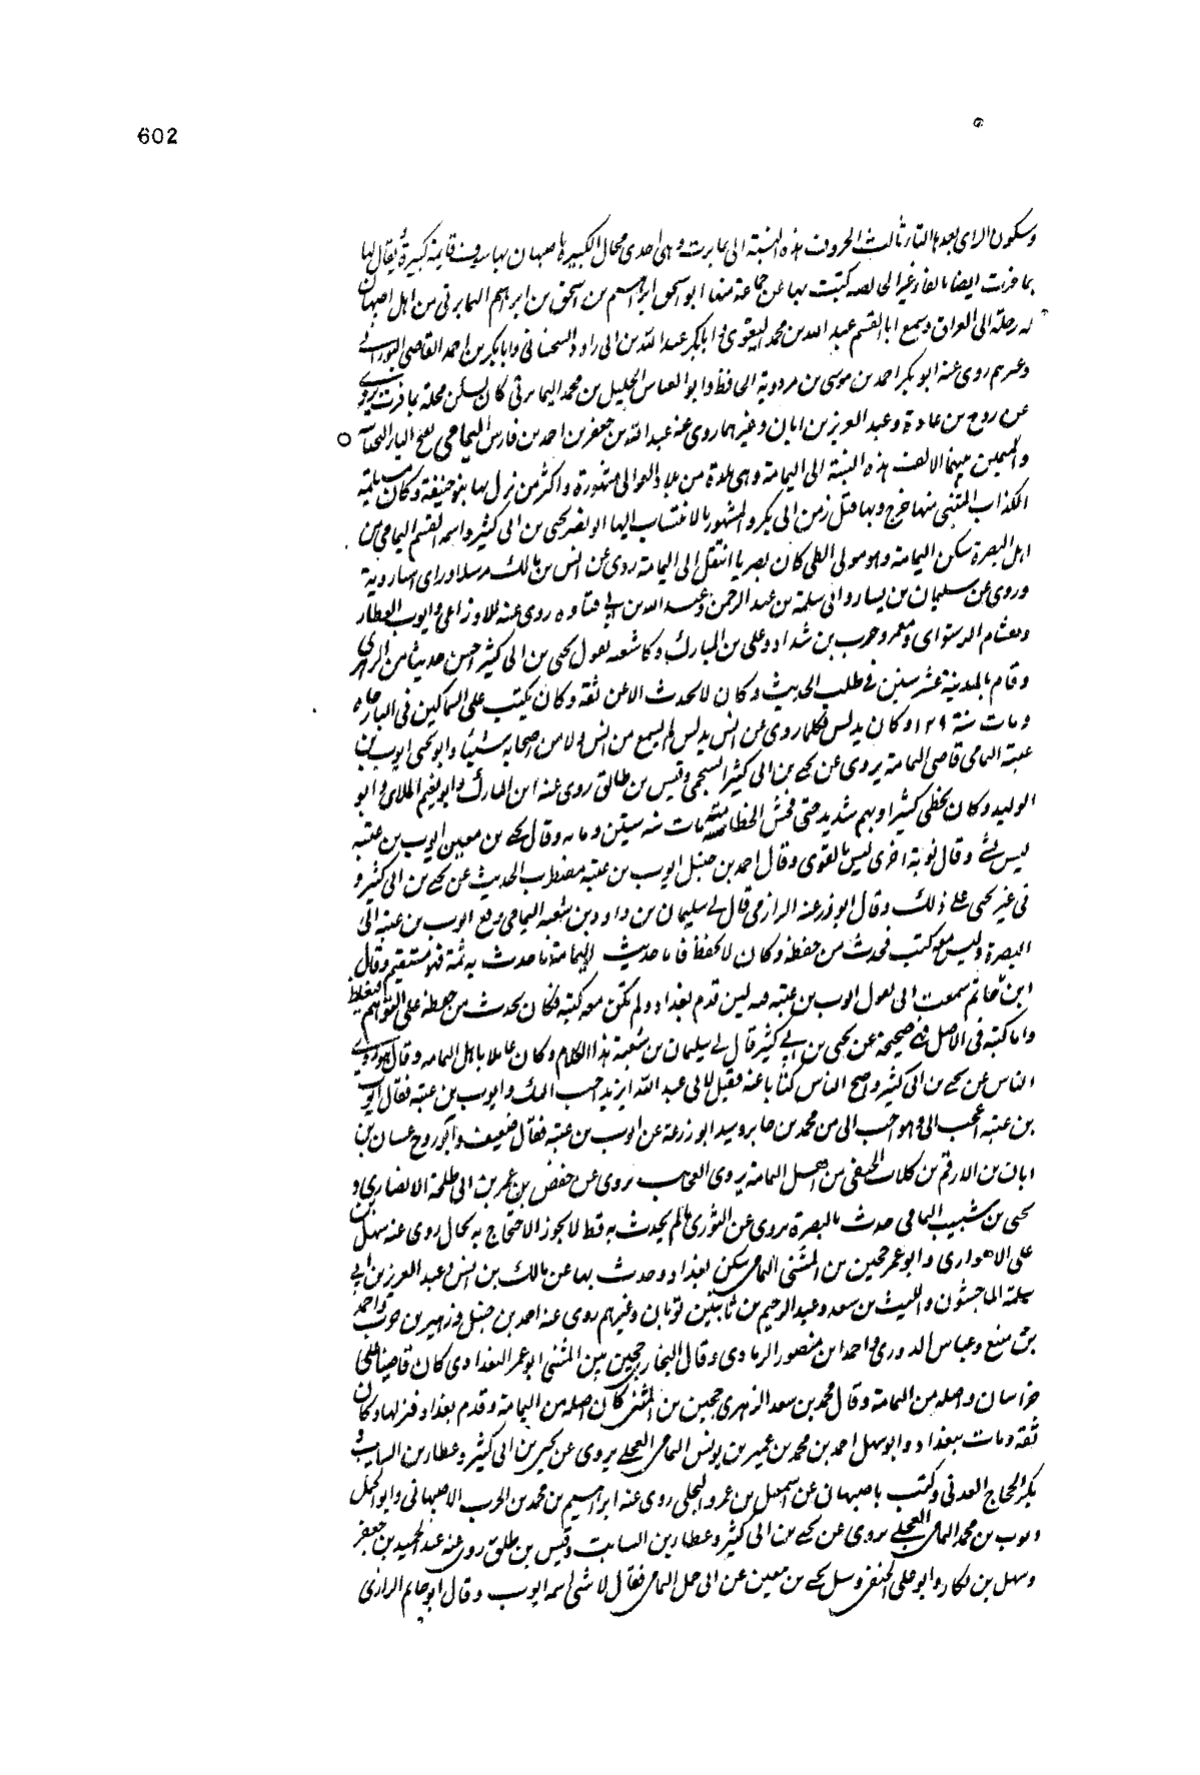 602
وسكون الراى بعدها التاء ثالث الحروف هذه النسبة الى يمابرت وهى احدى محال الكبيرة باصبهان بها سوق قايمة كبيرة يقال لها
بمافرت ايضا بالفاء غير الى كتبت بها عن جماعة منها ابو اسحق ابراهيم بن اسحق بن ابراهيم اليمابرتى من اهل اصبهان
له رحلة الى العراق وسمع ابا القسم عبد الله بن محمد البغوى وابابكر عبد الله بن ابى داود السجستانى وابابكر بن احمد القاضى البورانى
وغيرهم روى عنه ابو بكر احمد بن موسى بن مردوية الحافظ وابو العباس الخليل بن محمد اليمابرتى كان يسكن محلة بمافرت يروى
عن روح بن عبادة وعبد العزيز بن ابان وغيرهما روى عنه عبد الله بن جعفر بن احمد بن فارس اليمامى بفتح الياء
والميمين بينهما الالف هذه النسبة الى اليمامة وهى بلدة من بلاد العوالى مشهورة واكثر من نزل بها بنو حنيفة وكان مسيلمة
الكذاب المتنبى منها خرج وبها قتل زمن ابى بكر والمشهور بالانتساب اليها ابو نصر يحيى بن ابى كثير واسمه القسم اليمامى من
اهل البصرة سكن اليمامة وهو مولى الطى كان بصريا انتقل الى اليمامة روى عن انس بن مالك مرسلا وراى انسا روية
وروى عن سليمان بن يسار وابى سلمة بن عبد الرحمن وعبد الله بن ابى قتاده روى عنه الاوزاعى وايوب العطار
وهشام الدستواى ومعمر وحرب بن شداد وعلى بن المبارك وكان شعبه يقول يحيى بن ابى كثير احسن حديثا من الزهرى
وقام بالمدينة عشر سنين فى طلب الحديث وكان لا يحدث الا عن ثقة وكان يكتب على السماكين فى البارجاه
ومات سنة ١٢٩ وكان يدلس فكلما روى عن انس يدلس لم يسمع من انس ولا من الصحابه شيئا وابو يحيى ايوب بن
عتبة اليمامى قاضى اليمامة يروى عن يحيى بن ابى كثير السحيمى وقيس بن طالق روى عنه ابن المبارك وابو نعيم الملاى وابو
الوليد وكان يخطى كثيرا ويهم شديد حتى فحش الخطا منه مات سنه ستين ومايه وقال يحيى بن معين ايوب بن عتبه
ليس بشى وقال نوبة اخرى ليس بالقوى وقال احمد بن حنبل ايوب بن عتبه مضطرب الحديث عن يحيى بن ابى كثير و
فى غير يحيى على ذلك وقال ابو زرعة الرازى قال لى سليمان بن داود بن شعبه اليمامى وقع ايوب بن عتبه الى
البصرة وليس معه كتب فحدث من حفظه وكان لا يحفظ فاما حديث اليمامة ما حدث به ثمة فهو مستقيم وقال
ابن حاتم سمعت ابى يقول ايوب بن عتبه فيه لين قدم بغداد ولم يكن معه كتبه فكان يحدث من حفظه على التوهم فيغلط
واما كتبه فى الاصل فهى صحيحة عن يحيى بن ابى كثير قال لى سليمان بن شعبة هذا الكلام وكان عالما باهل اليمامه وقال هو اروى
الناس عن يحيى بن ابى كثير واصح الناس كتابا عنه فقيل لابى عبد الله ايزيد احب اليك وايوب بن عتبه فقال ايوب
بن عتبه اعجب الى وهو احب الى من محمد بن جابر وسيل ابو زرعة عن ايوب بن عتبه فقال ضعيف وابو روح غسان بن
ابان بن الارقم بن كلاب الحنفى من اهل اليمامة يروى العجايب روى عن حفص بن عمر بن ابى طلحة الانصارى و
يحيى بن شبيب اليمامى حدث بالبصرة يروى عن الثورى مالم يحدث به قط لا يجوز الاحتجاج به بحال روى عنه سهل بن
على الاهوازى وابو عمر حجين بن المثنى اليمامى سكن بغداد وحدث بها عن مالك بن انس وعبد العزيز بن ابى
سلمة الماجشون والليث بن سعد وعبد الرحيم بن ثابت بن ثوبان وغيرهم روى عنه احمد بن حنبل وزهير بن حرب واحمد
بن منيع وعباس الدورى واحد ابن منصور الرمادى وقال البخارى حجين بن المثنى ابو عمر البغدادى كان قاضيا على
خراسان واصله من اليمامة وقال محمد بن سعد الزهرى حجين بن المثنى كان اصله من اليمامة وقدم بغداد فنزلها وكان
ثقة ومات ببغداد وابو سهل احمد بن محمد بن عمير بن يونس اليمامى العجلى يروى عن يحيى بن ابى كثير وعطا بن السايب و
بكر الحاج العدنى وكتب باصبهان عن اسمعيل بن عمرو البجلى روى عنه ابراهيم بن محمد بن الحرب الاصبهانى وابو الجمل
ايوب بن محمد اليمامى العجلى يروى عن يحيى بن ابى كثير وعطا بن السايب وقيس بن طلق روى عنه عبد الحميد بن جعفر
وسهل بن بكار وابو على الحنفى وسيل يحيى بن معين عن ابى جمل اليمامى فقال لا شى اسمه ايوب وقال ابو حاتم الرازى